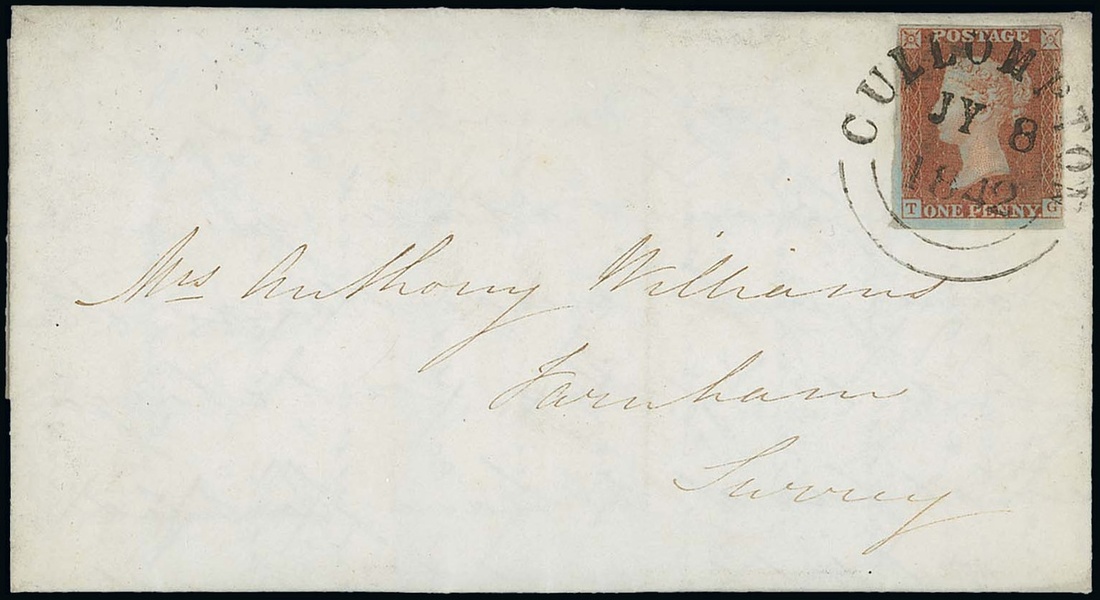 POSTAGE
CULLOMPTON
JY 8
1842
T ONE PENNY. G
Mrs Anthony Williams
Farnham
Surrey